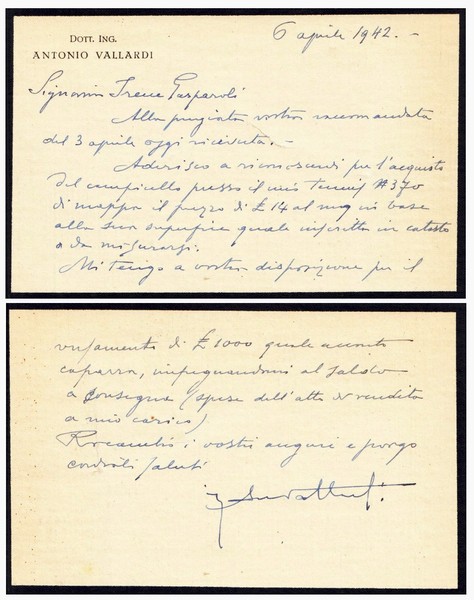 DOTT. ING.
ANTONIO VALLARDI
6 aprile 1942. –
Signorina Irene Gasparoli
Alla pregiata vostra raccomandata
del 3 aprile oggi ricevuta. –
Aderisco a riconoscervi per l'acquisto
del campicello presso il mio Tennis #370
di mappa il prezzo di £ 14 al mq in base
alla sua superfice quale inscritta in catasto
o da misurarsi.
Mi tengo a vostra disposizione per il
versamento di £ 1000 quale acconto
caparra, impegnandomi al saldo
a consegna (spese dell'atto di vendita
a mio carico)
Ricambio i vostri auguri e porgo
cordiali saluti